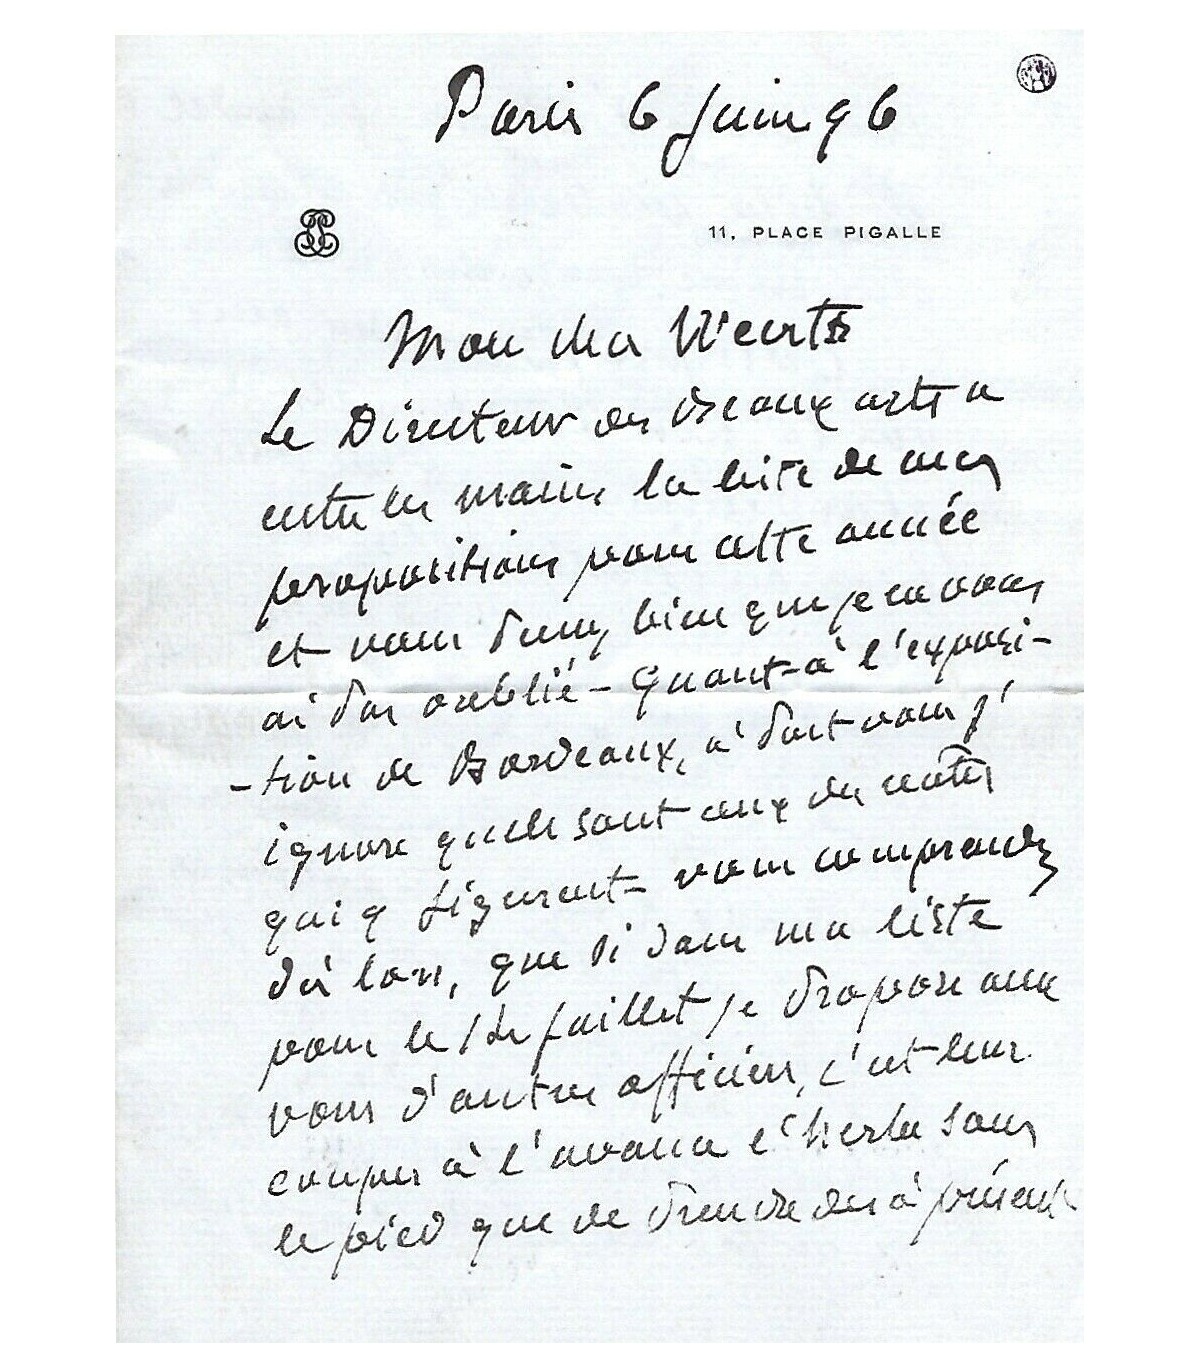 Paris 6 Juin 96
11, PLACE PIGALLE
Mon cher Weerts
Le Directeur des Beaux arts a
entre les mains la liste de mes
propositions pour cette année
et vous pensez bien que je ne vous
ai pas oublié – Quant à l'exposi-
-tion de Bordeaux, à part vous j'
ignore quels sont ceux des nôtres
qui y figurent – vous comprenez
dès lors, que si dans ma liste
pour le 14 Juillet je propose avec
vous d'autres officiers, c'est leur
couper à l'avance l'herbe sous
le pied que de prendre dès à présent